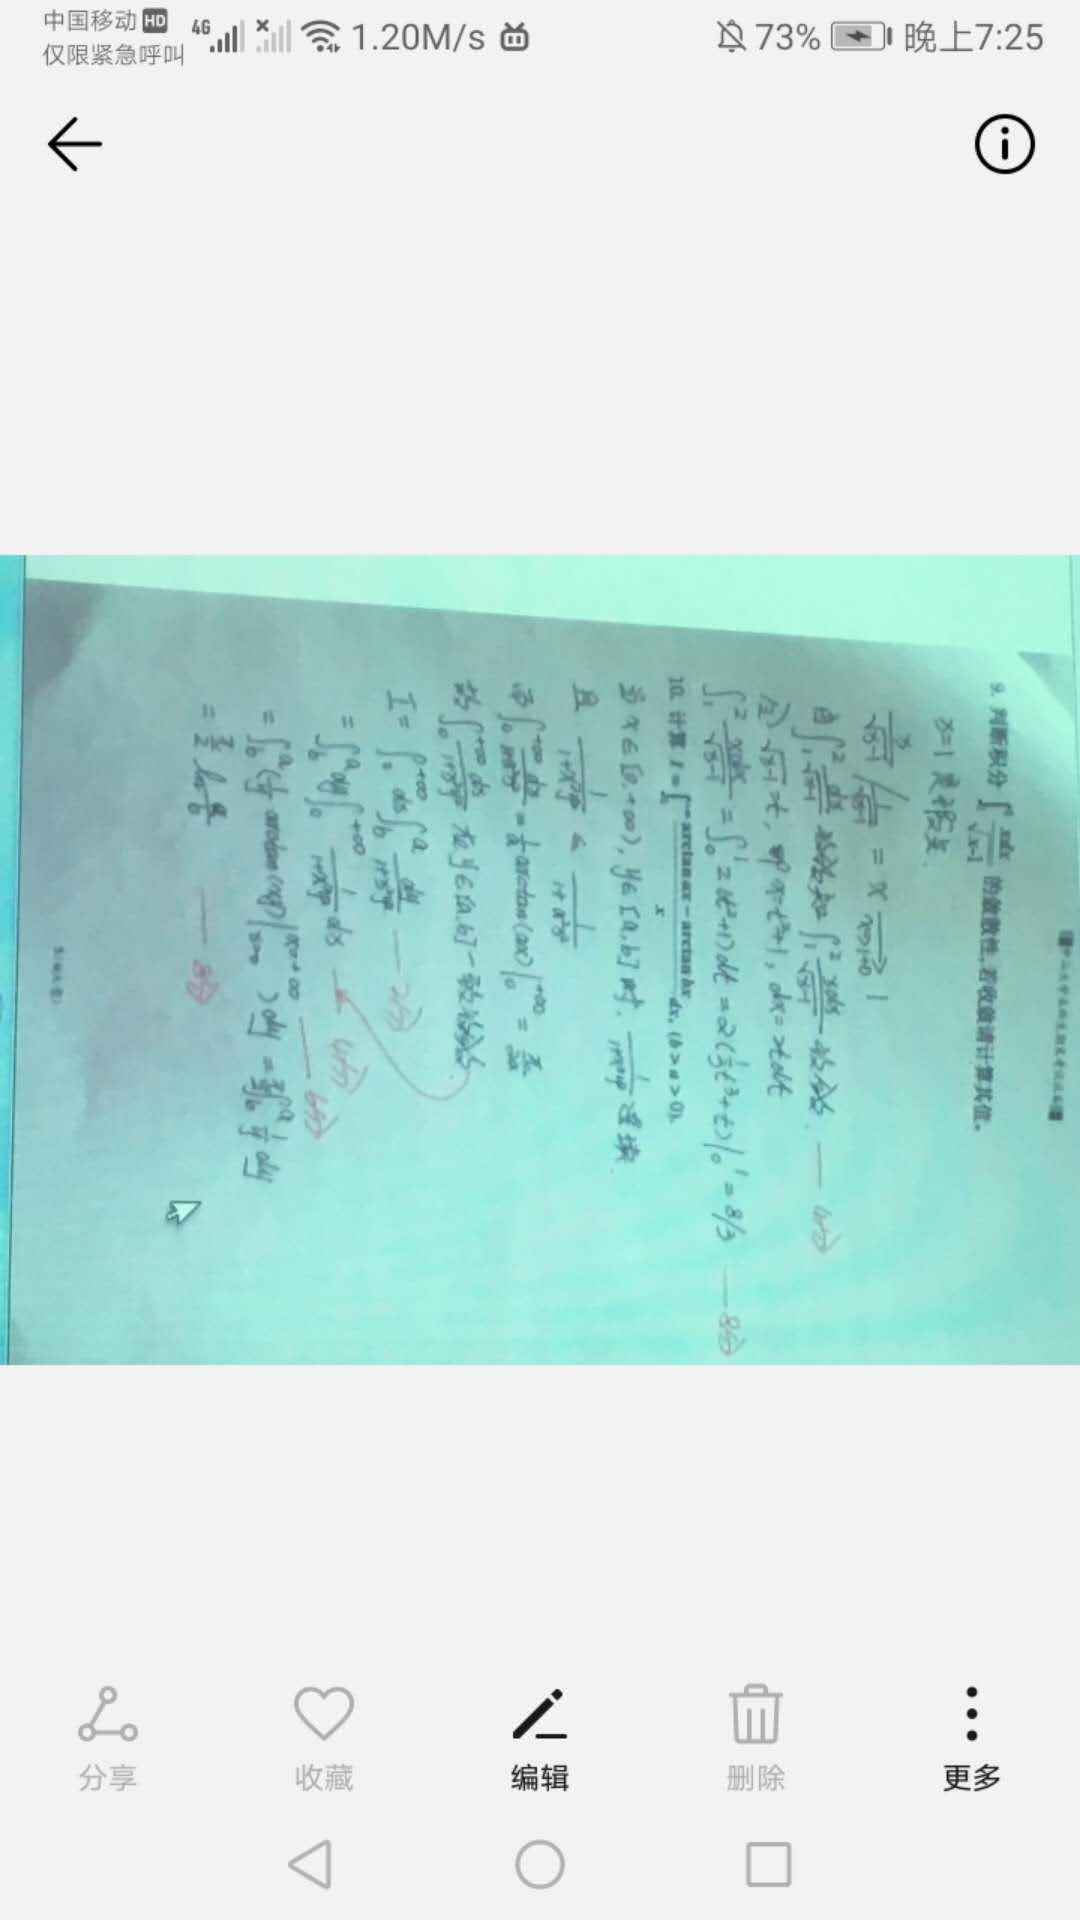 中山大学本科生期末考试试卷
9. 判断积分 ∫ xdx/√x-1 的敛散性,若收敛请计算其值。
x=1 是瑕点.
x/√x-1 / 1/√x-1 = x → x→1+0 1
由 ∫₁² dx/√x-1 收敛知 ∫₁² xdx/√x-1 收敛. — 4分
令 √x-1=t, 即 x=t²+1, dx=2tdt
∫₁² xdx/√x-1 = ∫₀¹ 2(t²+1)dt = 2(1/3t³+t)|₀¹ = 8/3 — 8分
10. 计算 I=∫ arctan ax − arctan bx/x dx, (b>a>0).
当 x∈[0,+∞), y∈[a,b] 时, 1/1+x²y² 连续.
且 1/1+x²y² ≤ 1/1+a²x²
而 ∫₀^+∞ dx/1+a²x² = 1/a arctan(ax)|₀^+∞ = π/2a
故 ∫₀^+∞ dx/1+x²y² 在 y∈[a,b] 一致收敛.
I= ∫₀^+∞ dx ∫_b^a dy/1+x²y² — 2分
= ∫_b^a dy ∫₀^+∞ 1/1+x²y² dx — 4分
= ∫_b^a (1/y arctan(xy)|_x=0^x→+∞) dy = π/2 ∫_b^a 1/y dy — 6分
= π/2 ln a/b — 8分
中国移动 HD 4G 1.20M/s
仅限紧急呼叫
73% 晚上7:25
更多
删除
编辑
收藏
分享